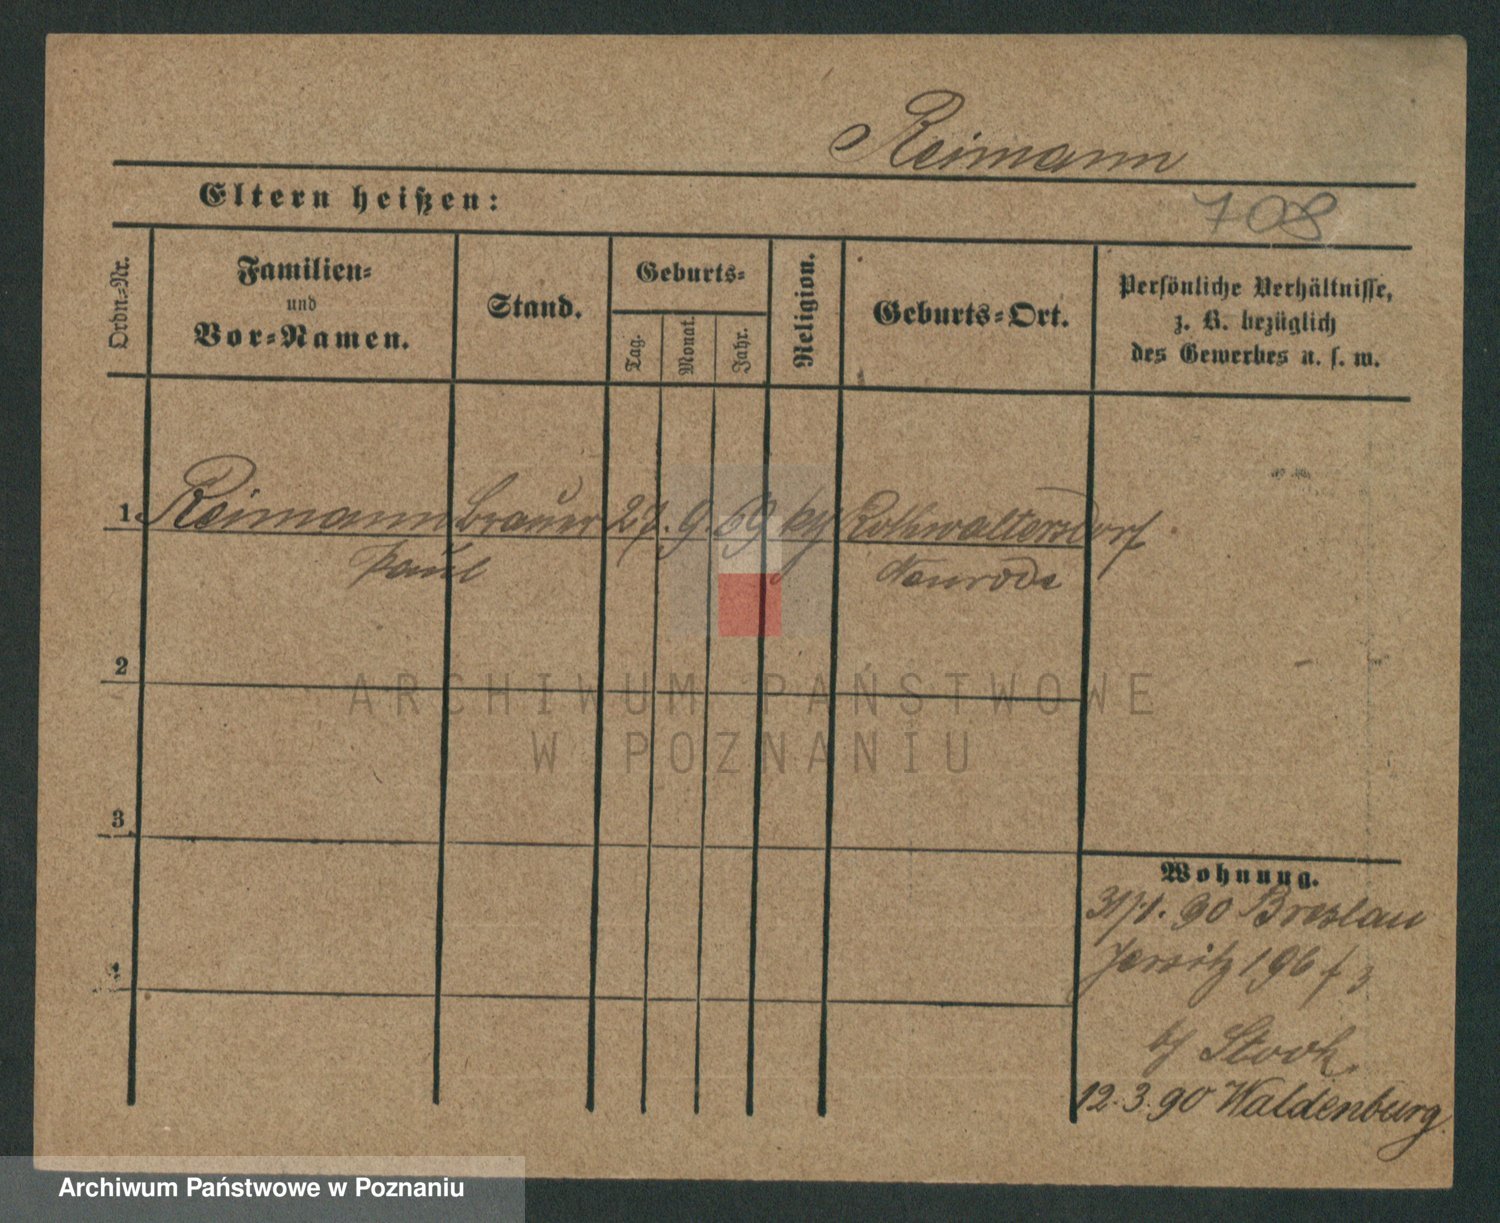 Reimann
Eltern heißen:
708
Ordn.-Nr.
Familien-
und
Vor-Namen.
Stand.
Geburts-
Tag.
Monat.
Jahr.
Religion.
Geburts-Ort.
Persönliche Verhältnisse,
z. B. bezüglich
des Gewerbes u. s. w.
1 Reimann Brauer 27. 9. 69 Rothwaltersdorf
Paul Neurode
2
ARCHIWUM PAŃSTWOWE
W POZNANIU
3
Wohnung.
31/1. 90 Breslau
Jersitz 196
4
by Stock
12. 3. 90 Waldenburg.
Archiwum Państwowe w Poznaniu